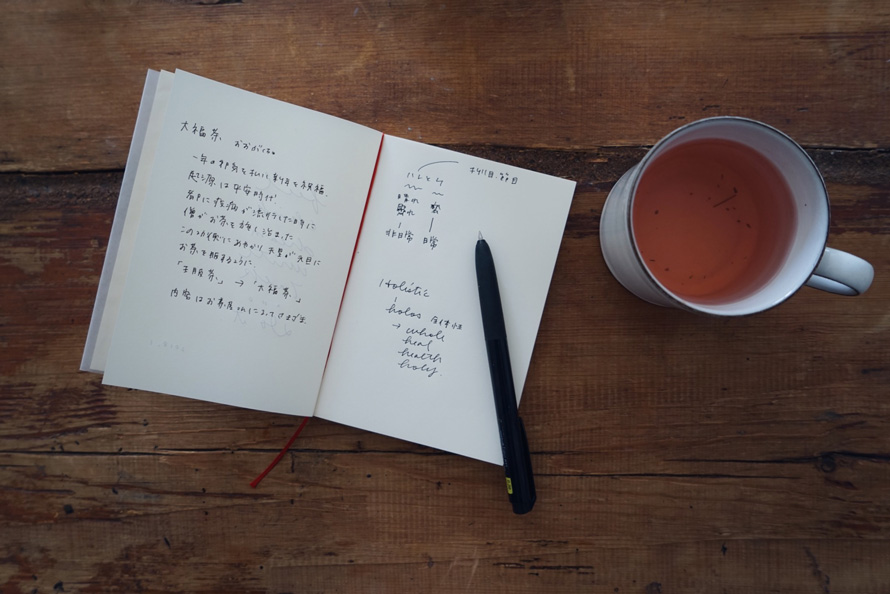 大福茶 おおぶくちゃ
一年の邪気を払い、新年を祝福。
起源は平安時代
都に疫病が流行した時に
僧がお茶を施し治まった
この功徳にあやかり、天皇が元日に
お茶を服するように
「王服茶」→「大福茶」
内容はお茶屋さんによってさまざま。
ハレとケ
折り目・節目
晴れ 褻
霽れ
非日常 日常
Holistic
holos 全体性
→ whole
heal
health
holy.